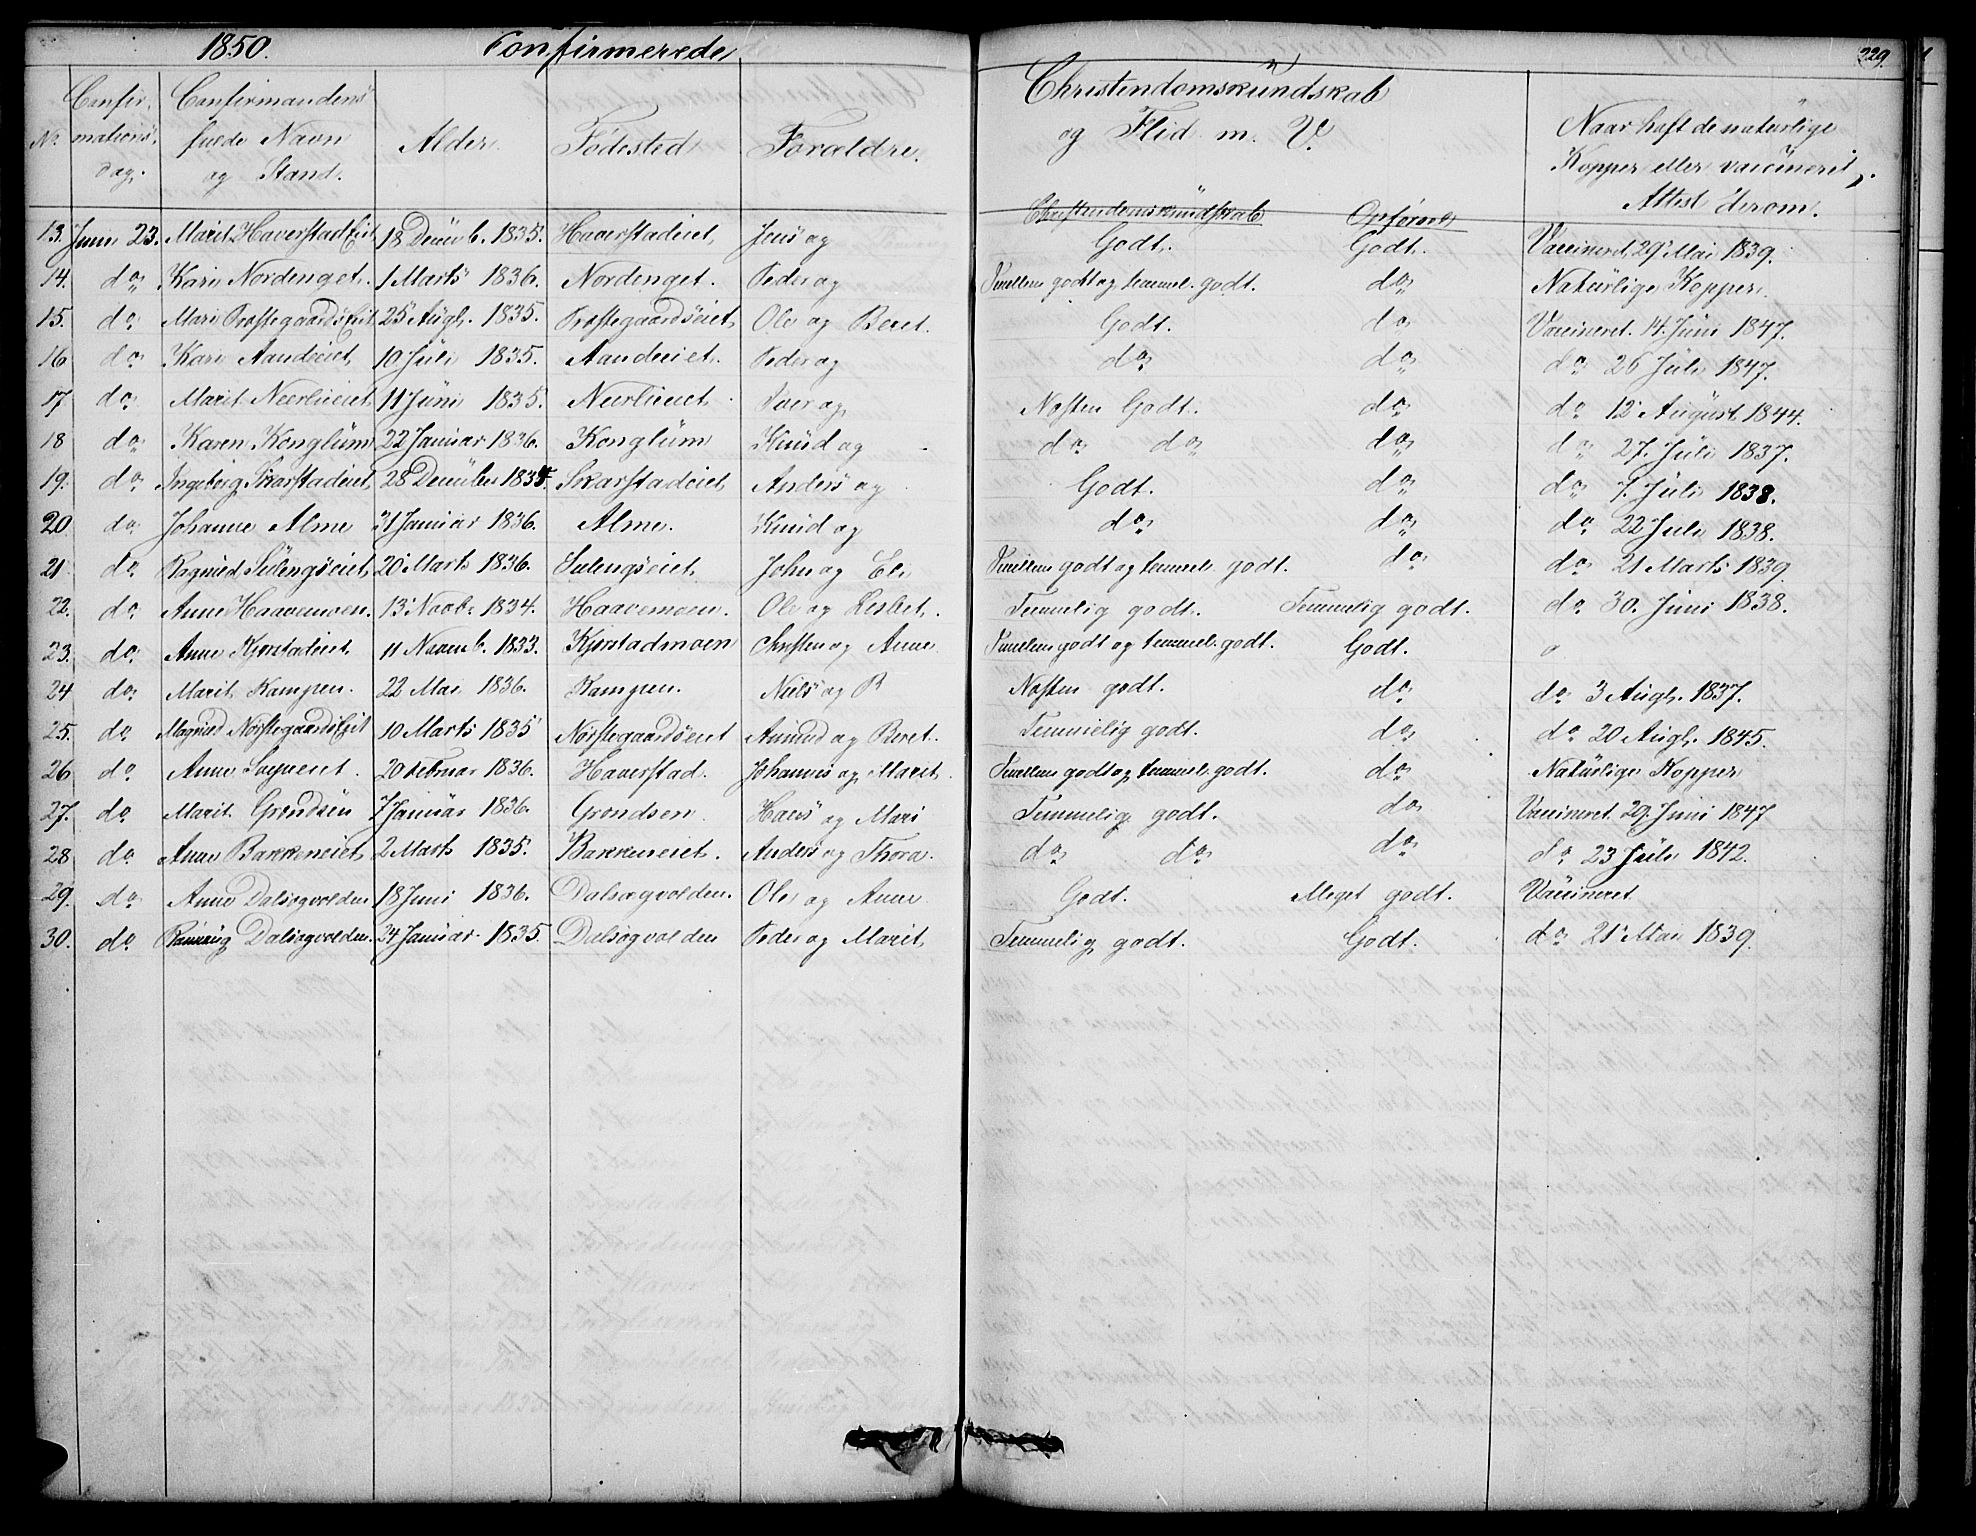 1850. Confirmerede 229.
No. Confirmations dag. Confirmandens fulde Navn og Stand. Alder. Fødested Forældre. Christendomskundskab og Flid m. V. Naar haft de naturlige Kopper eller vaccineret, Attest derom.
Christendomskundskab Opførsel
13. Junii 23. Marit Haverstad Eiet 18 Decemb. 1835. Haverstadeiet Jens og Godt. Godt. Vaccineret 29 Mai 1839.
14. do Kari Nordenget. 1 Marts 1836. Nordenget. Peder og Imellem godt og temmel. godt. do Naturlige Kopper
15. do Mari Prostegaards Eiet 25 Augh. 1835. Prostegaardseiet Ole og Beret. Godt. do Vaccineret. 14. Juni 1847.
16 do Kari Aandeiet 10 Juli 1835. Aandeiet. Peder og do do do 26 Juli 1847.
17 do Marit Neerlieiet 11 Juni 1835. Neerlieiet Iver og Nesten Godt. do do 12 August 1844.
18 do Karen Konglum 22 Januar 1836. Konglum Knud og do do do do 27. Juli 1837.
19. do Ingeborg Skarstadeiet 28 December 1834. Skarstadeiet Anders og Godt. do do 7. Juli 1838.
20 do Johanne Alme 31 Januar 1836. Alme. Knud og do do do 22 Juli 1838.
21 do Ragnild Sulengseiet 20 Marts 1836. Sulengseiet John og Eli Imellem godt og temmel. godt. do do 21 Marts 1839.
22. do Anne Haavemoen. 13 Novbr 1834. Haavemoen. Ole og Lisbet. Temmelig godt. Temmelig godt. do 30. Juni 1838.
23. do Anne Kjorstadeiet 11 Novemb. 1833. Kjorstadmoen Christen og Anne Imellem godt og temmel. godt. Godt. o
24 do Marit Kampen. 22 Mai 1836. Kampen. Niels og B Nesten godt. do do 3 Augh. 1837.
25. do Magnild Norstegaards Eiet 10 Marts 1835 Norstegaardseiet Amund og Beret. Temmelig godt. do do 20 Augh. 1845.
26 do Anne Sogneeiet. 20 Februar 1836. Haverstad. Johannes og Marit. Imellem godt og temmel. godt. do Naturlige Kopper
27. do Marit Grondsen 7 Januar 1836. Grondsen. Hans og Mari Temmelig godt. do Vaccineret. 29. Juni 1847
28 do Anne Bakkeneiet 2 Marts 1835. Bakkeneiet. Anders og Thora. do do do do 23 Juli 1842.
29. do Anne Dalsegvolden 18 Juni 1836. Dalsegvolden. Ole og Anne Godt. Meget godt. Vaccineret
30. do Rannug Dalsegvolden. 24 Januar 1835. Dalsegvolden Peder og Marit Temmelig godt. Godt. do 21 Mai 1839.